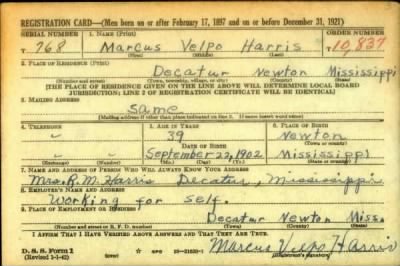 REGISTRATION CARD—(Men born on or after February 17, 1897 and on or before December 31, 1921)
SERIAL NUMBER 1. NAME (Print) ORDER NUMBER
T 768 Marcus Velpo Harris 10,837
(First) (Middle) (Last)
2. PLACE OF RESIDENCE (Print)
Decatur Newton Mississippi
(Number and street) (Town, township, village, or city) (County) (State)
[THE PLACE OF RESIDENCE GIVEN ON THE LINE ABOVE WILL DETERMINE LOCAL BOARD
JURISDICTION; LINE 2 OF REGISTRATION CERTIFICATE WILL BE IDENTICAL]
3. MAILING ADDRESS
same
[Mailing address if other than place indicated on line 2. If same insert word same]
4. TELEPHONE 5. AGE IN YEARS 6. PLACE OF BIRTH
39 Newton
DATE OF BIRTH (Town or county)
September 22, 1902 Mississippi
(Exchange) (Number) (Mo.) (Day) (Yr.) (State or country)
7. NAME AND ADDRESS OF PERSON WHO WILL ALWAYS KNOW YOUR ADDRESS
Mrs. R. M. Harris Decatur, Mississippi
8. EMPLOYER'S NAME AND ADDRESS
Working for self.
9. PLACE OF EMPLOYMENT OR BUSINESS
Decatur Newton Miss.
(Number and street or R. F. D. number) (Town) (County) (State)
I AFFIRM THAT I HAVE VERIFIED ABOVE ANSWERS AND THAT THEY ARE TRUE.
D. S. S. Form 1
(Revised 1-1-42) (over) Marcus Velpo Harris
(Registrant's signature)